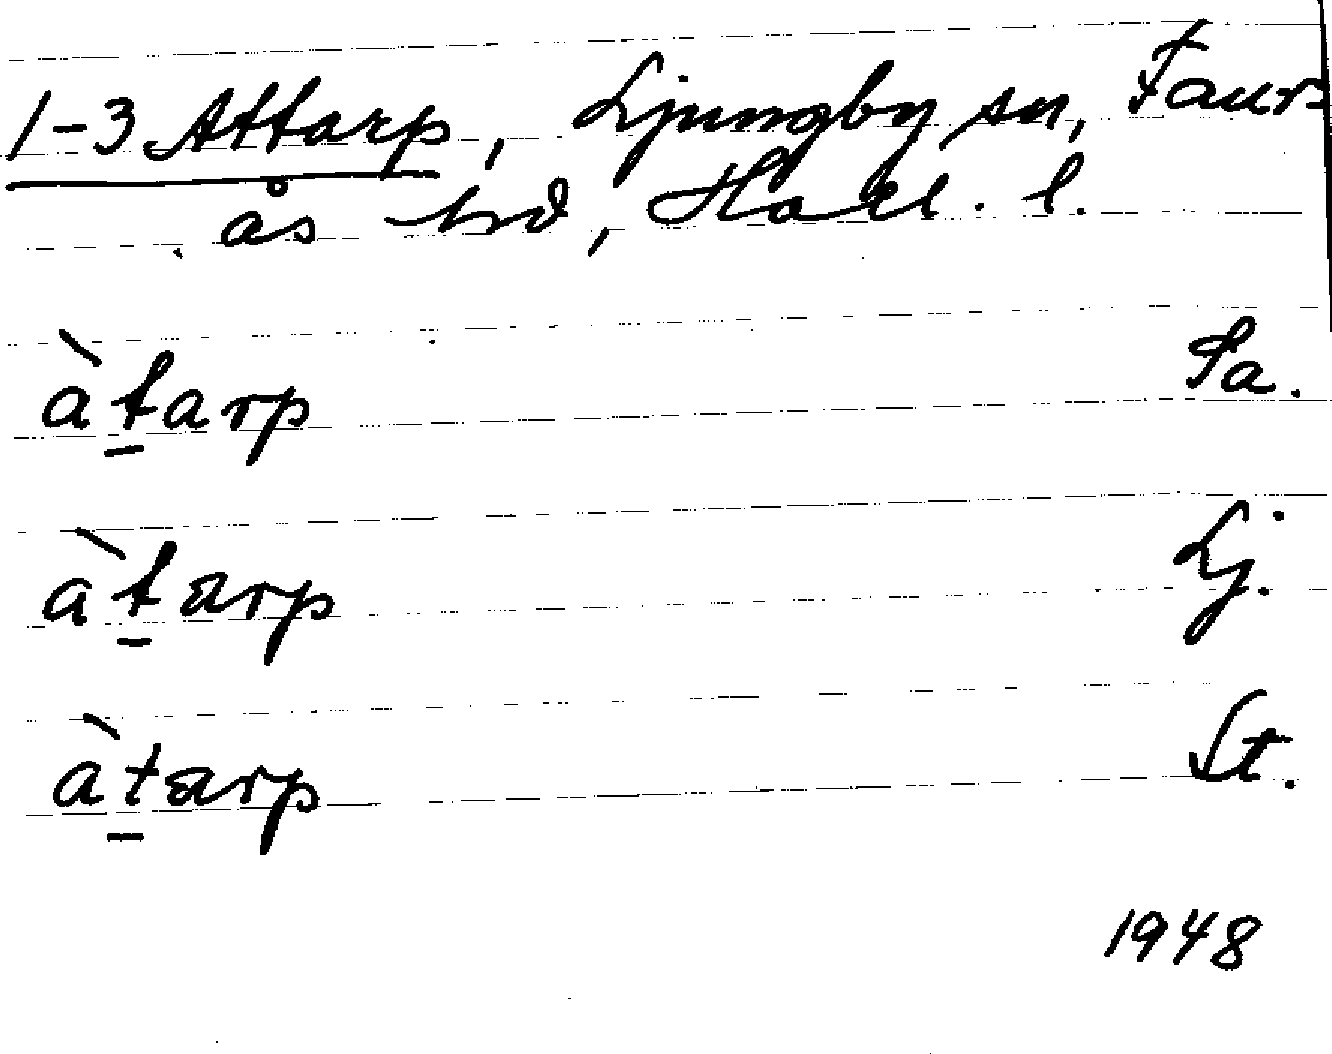 1-3 Attarp, Ljungby sn, Faur-
ås hd, Hall. l.
àt̲arp Sa.
àt̲arp Lj.
àt̲arp St.
1948